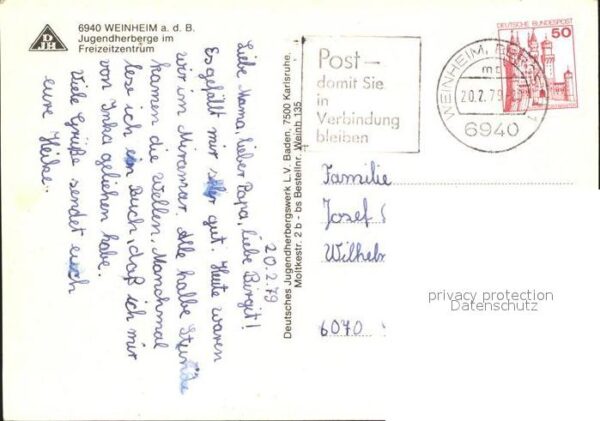 6940 WEINHEIM a. d. B.
Jugendherberge im
Freizeitzentrum
DJH
20.2.79
Liebe Mama, lieber Papa, liebe Birgit!
Es gefällt mir sehr gut. Heute waren
wir im Miramar. Alle halbe Stunde
kamen die Wellen. Manchmal
lese ich ein Buch, daß ich mir
von Inka geliehen habe.
Viele Grüße sendet euch
eure Heike.
Deutsches Jugendherbergswerk L.V. Baden, 7500 Karlsruhe,
Moltkestr. 2 b - bs Bestellnr. Weinh 135
Post –
domit Sie
in
Verbindung
bleiben
WEINHEIM, BERGSTR 1
20.2.79
6940
DEUTSCHE BUNDESPOST
50
Familie
Josef
Wilhelm
6070
privacy protection
Datenschutz